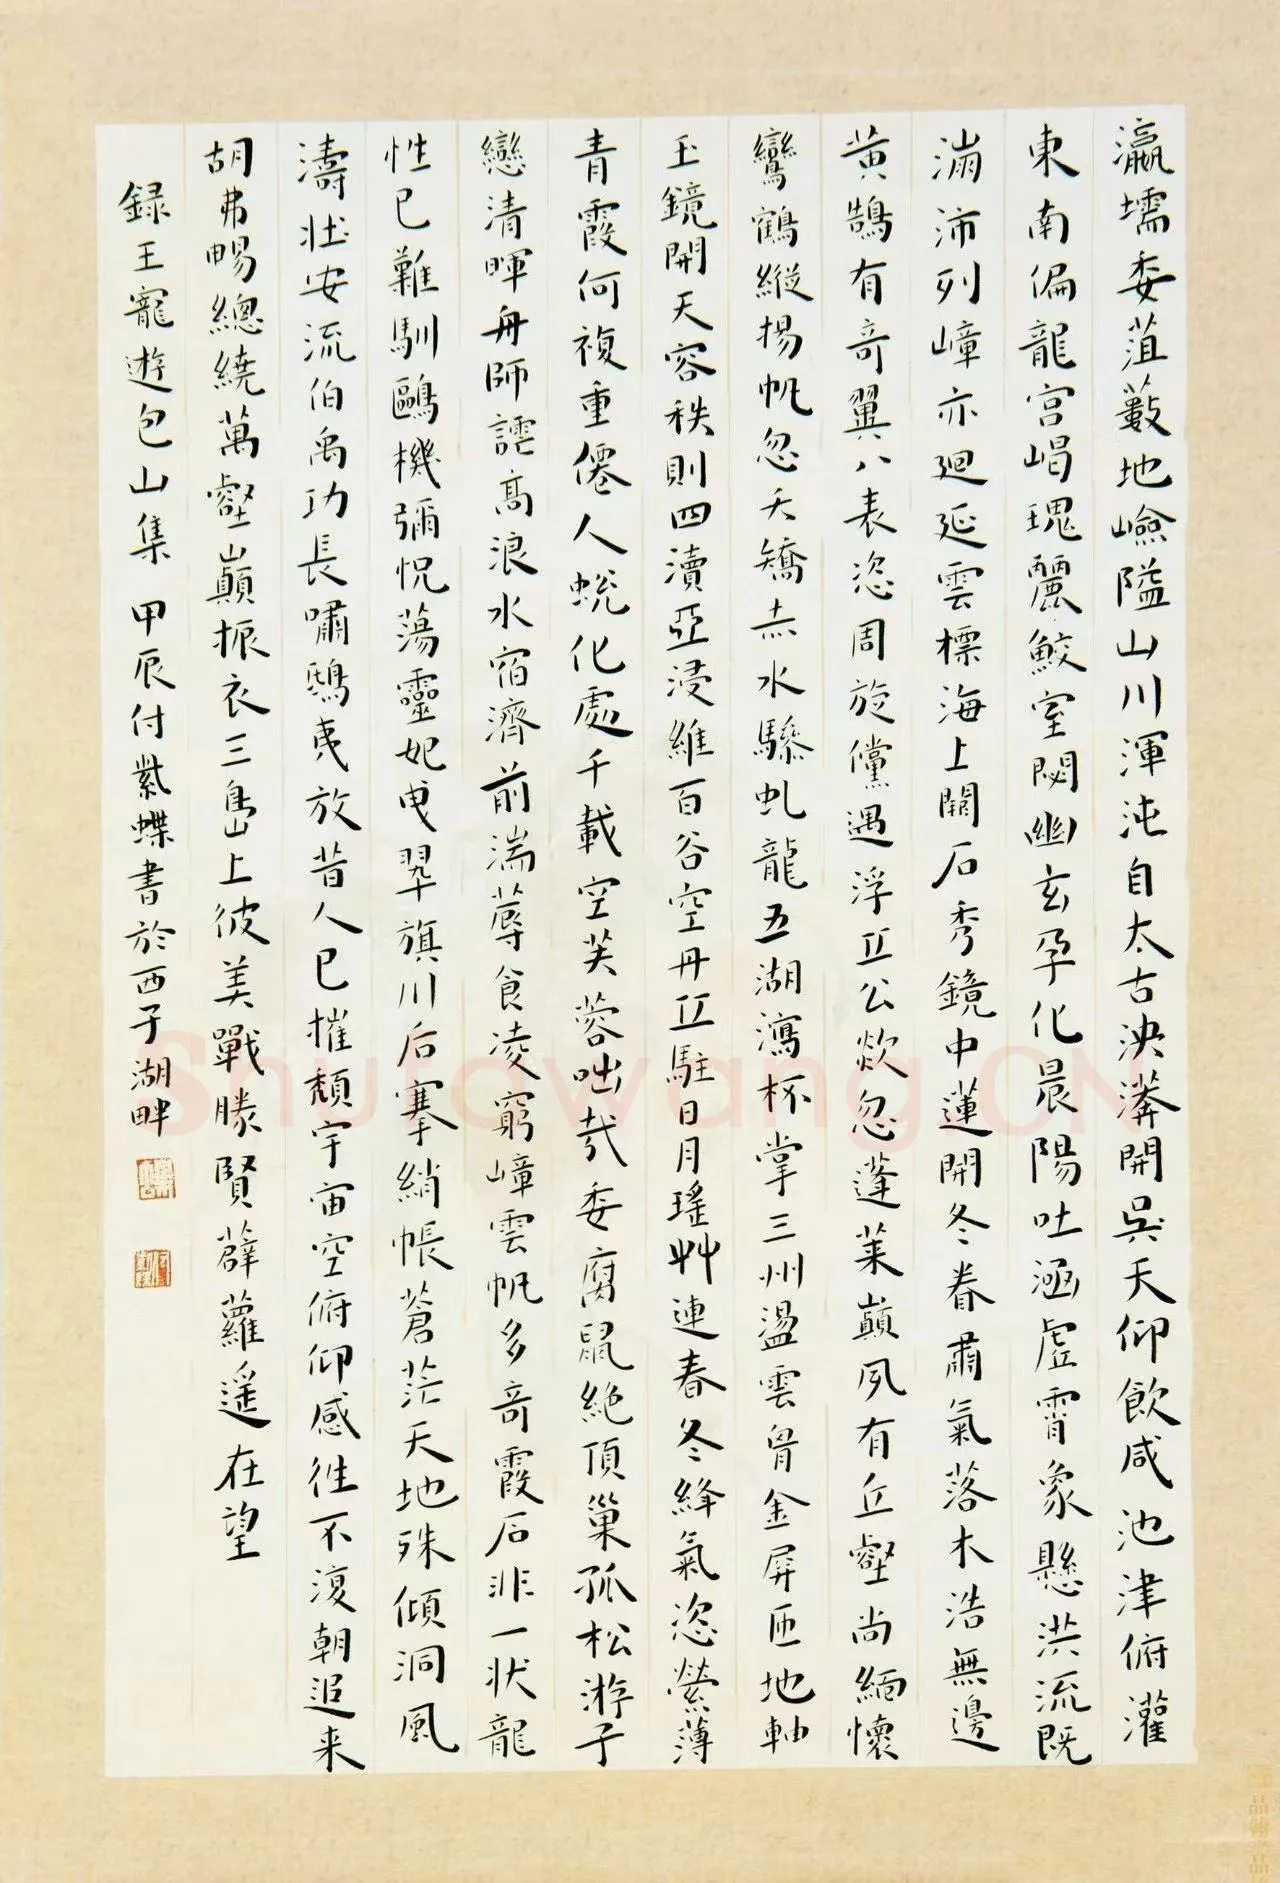 瀛壖委菹薮地嶮隘山川渾沌自太古泱漭開吳天仰飲咸池津俯灌
東南偏龍宮崵瑰麗鮫室閟幽玄孕化晨陽吐涵虛霄象懸洪流既
滿沛列嶂亦迴延雲標海上闢石秀鏡中蓮開冬眷肅氣落木浩無邊
黄鵠有奇翼八表恣周旋儻遇浮丘公欻忽蓬莱巔夙有丘壑尚緬懷
鸞鶴縱揚帆忽夭矯赤水驂虬龍五湖瀉杯掌三州盪雲胷金屏匝地軸
玉鏡開天容秩則四瀆亞浸維百谷空丹丘駐日月瑤艸連春冬絳氣恣縈薄
青霞何複重僊人蛻化處千載空芙蓉咄哉委腐鼠絶頂巢孤松游子
戀清暉舟師謊高浪水宿濟前湍蓐食凌窮嶂雲帆多奇霞石非一状龍
性已難馴鷗機彌怳蕩靈妃曳翠旗川后搴綃帳蒼茫天地殊傾洞風
濤壯安流伯禹功長嘯鴟夷放昔人已摧頽宇宙空俯仰感往不復朝追来
胡弗暢總繞萬壑巔振衣三島上彼美戰勝賢薜蘿遥在望
録王寵遊包山集 甲辰付紫蝶書於西子湖畔
Shufawang.CN